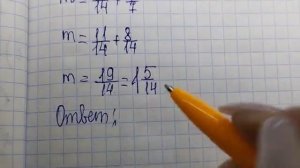 m = 11/14 + 8/14
m = 19/14 = 1 5/14
Ответ: